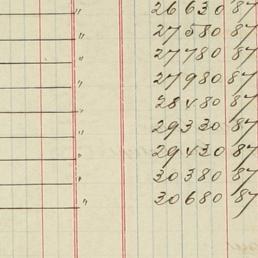 " 26630 87
27580 87
" 27780 87
27980 87
" 28480 87
29330 87
" 29430 87
30380 87
" 30680 87